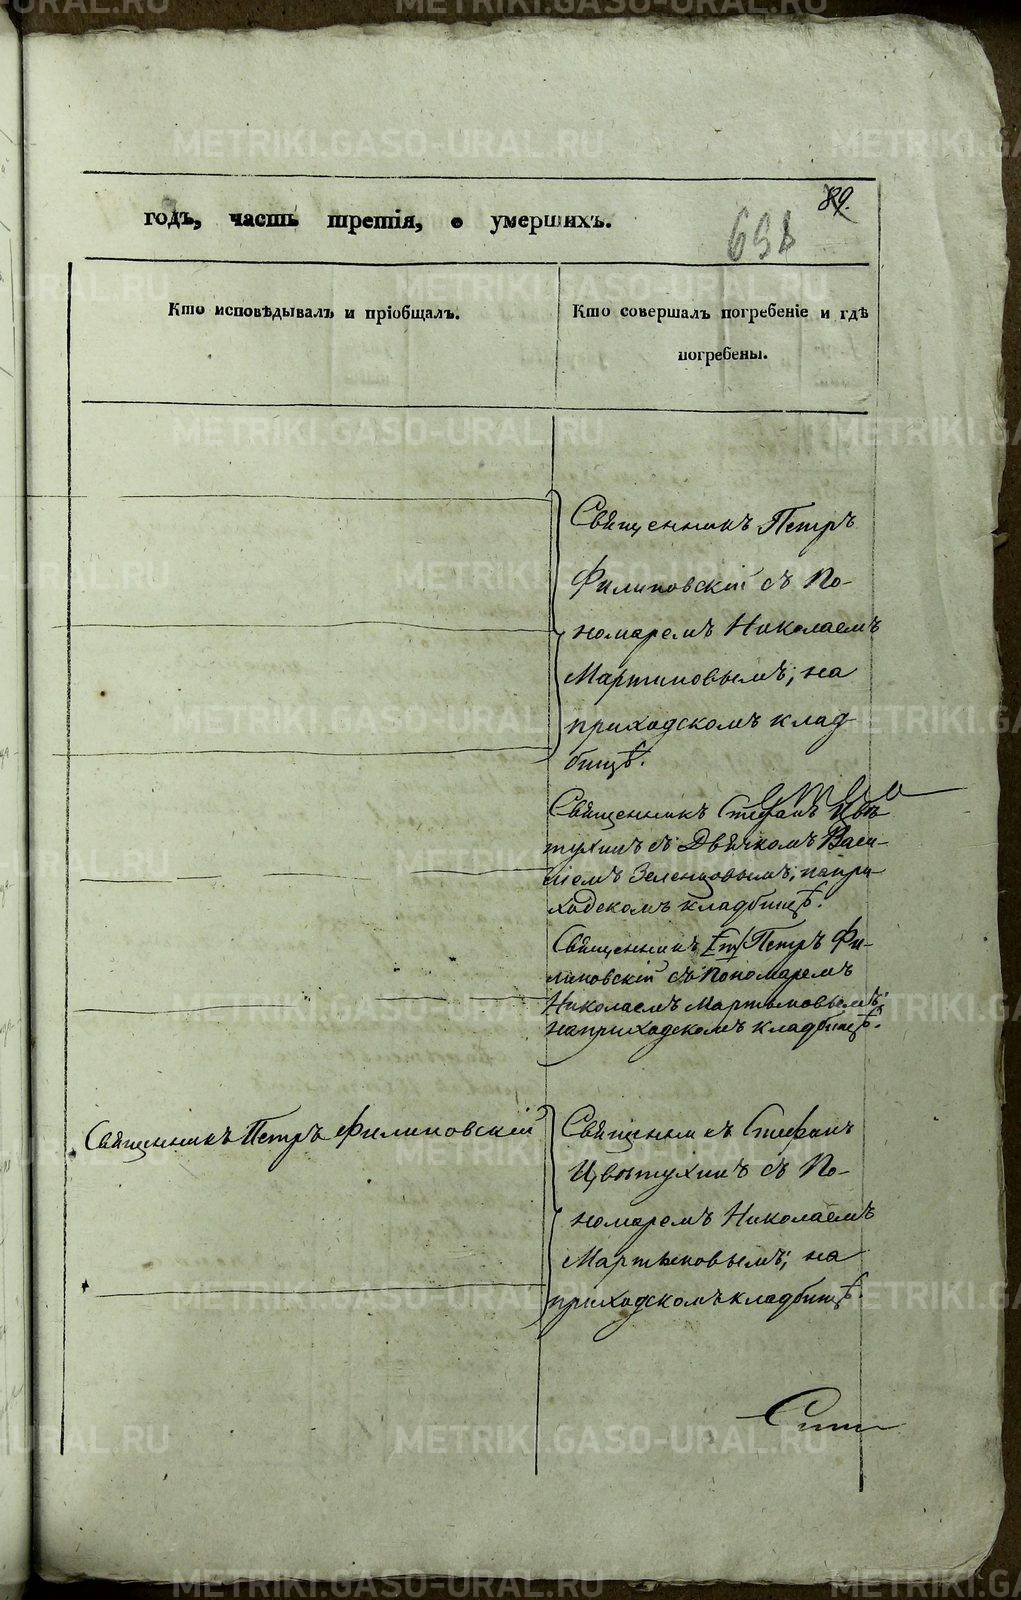 89.
годъ, часть третія, о умершихъ.
Кто исповѣдывалъ и пріобщалъ.
Кто совершалъ погребеніе и гдѣ
погребены.
Священникъ Петръ
Филиповскій съ По-
номаремъ Николаемъ
Мартиновымъ; на
приходскомъ клад-
бищѣ.
Священникъ Стефанъ Цвѣ
тухинъ съ Дьячкомъ Васи-
ліемъ Зеленцовымъ; на при-
ходскомъ кладбищѣ.
Священникъ Петръ Фи-
липовскій съ Пономаремъ
Николаемъ Мартыновымъ;
на приходскомъ кладбищѣ.
Священникъ Петръ Филиповскій
Священникъ Стефанъ
Цвѣтухинъ съ По-
номаремъ Николаемъ
Мартыновымъ; на
приходскомъ кладбищѣ.
METRIKI.GASO-URAL.RU